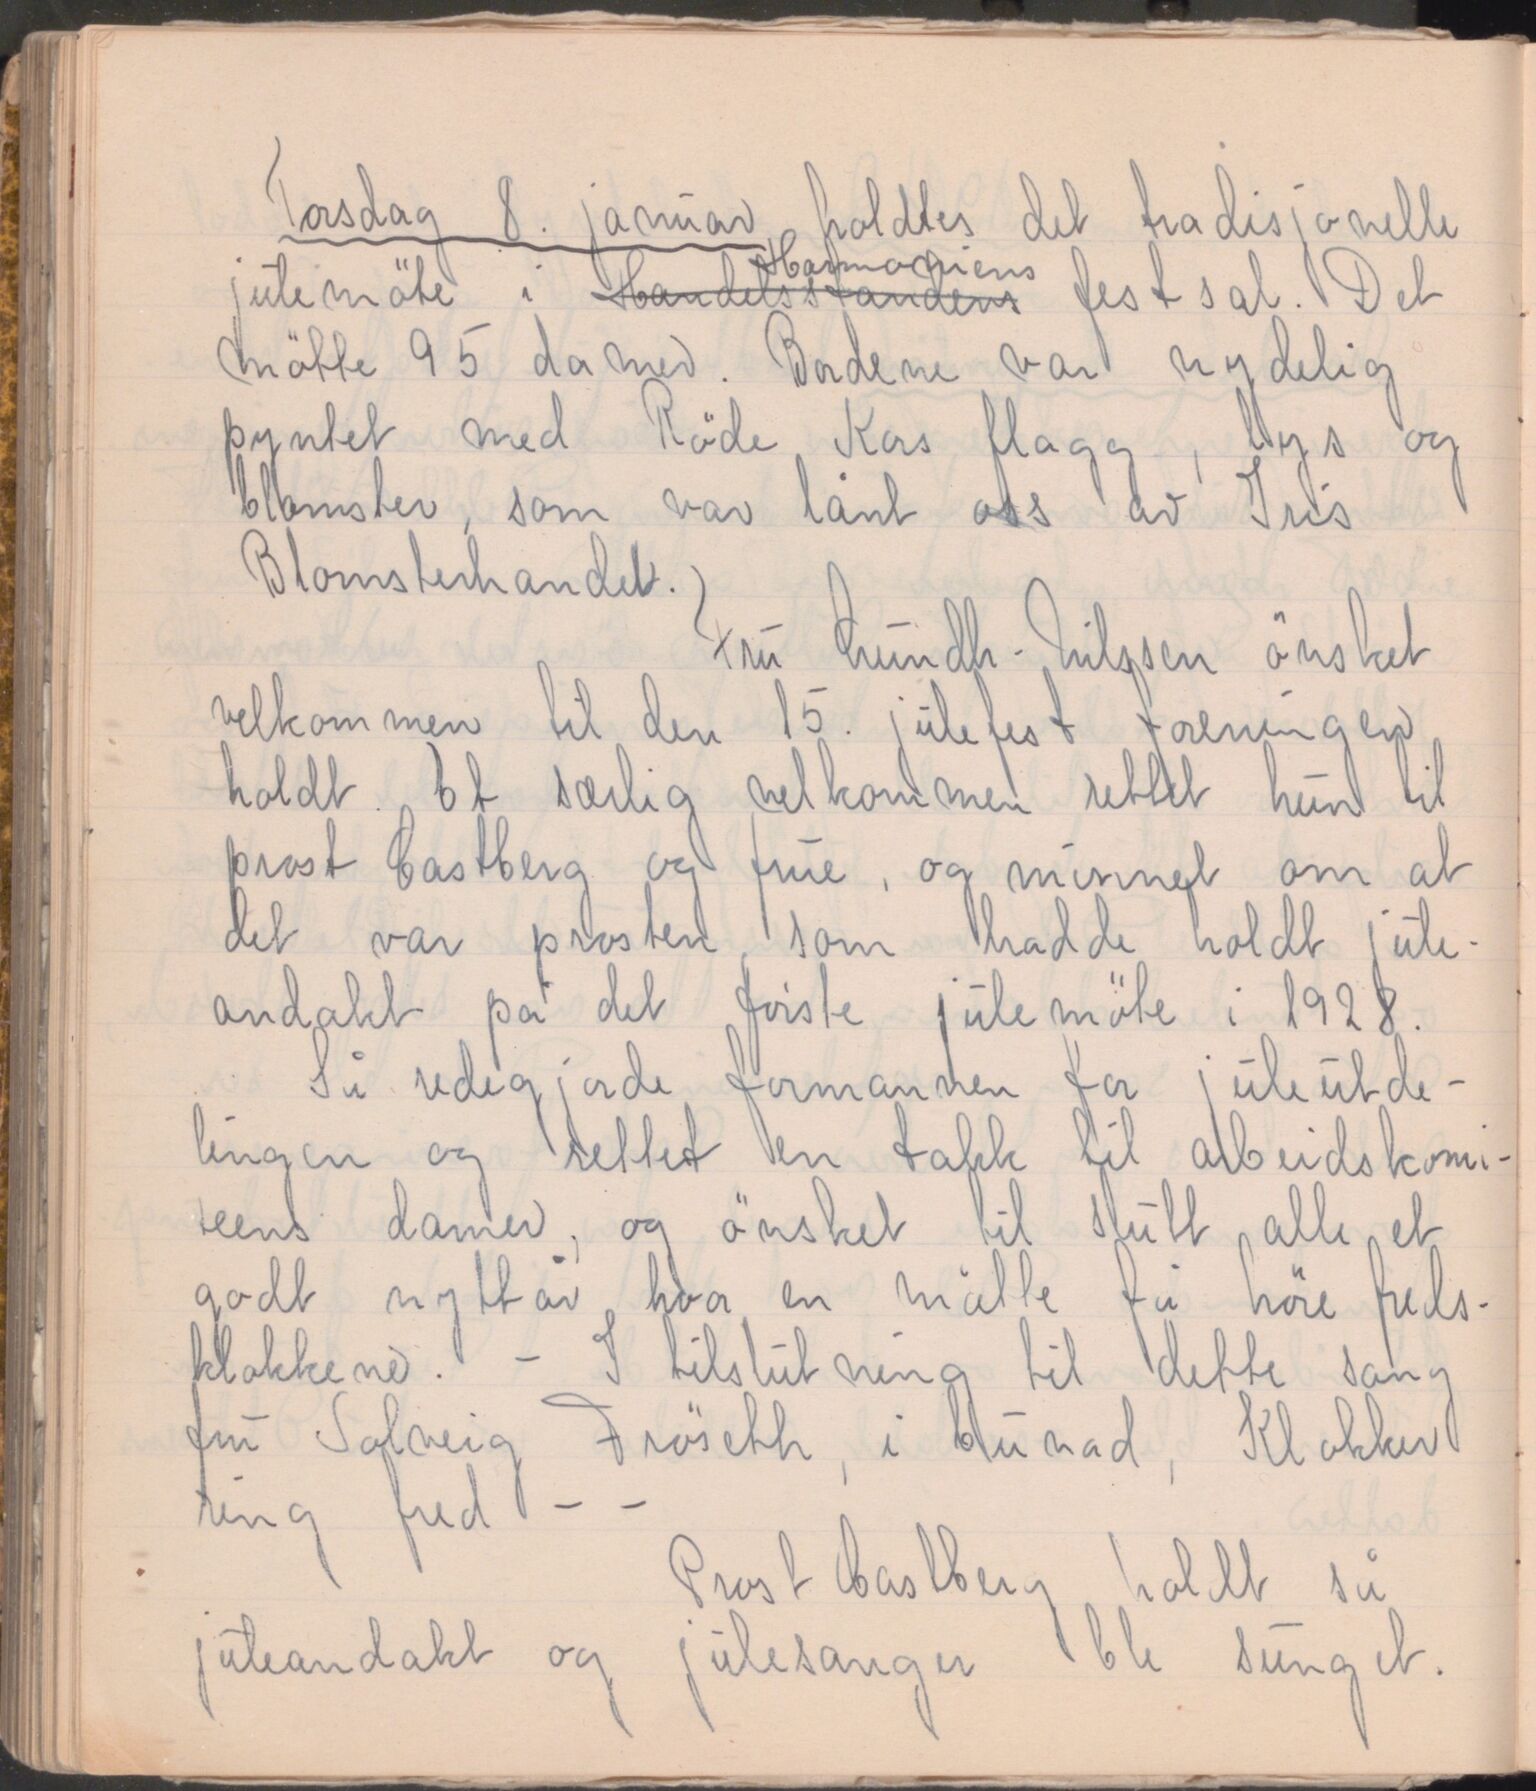 Torsdag 8. januar holdtes det tradisjonelle
julemöte i Harmoniens festsal. Det
mötte 95 damer. Bordene var nydelig
pyntet med Röde Kors flagg, lys og
blomster, som var lånt oss av Iris
Blomsterhandel.
Fru Lundh-Nilssen önsket
velkommen til den 15. julefest foreningen
holdt. Et særlig velkommen rettet hun til
prost Castberg og frue, og minnet om at
det var prosten som hadde holdt jule-
andakt på det förste julemöte i 1928.
Så redegjorde formannen for juleutde-
lingen og rettet en takk til arbeidskomi-
teens damer, og önsket til slutt alle et
godt nyttår hvor en måtte få höre freds-
klokkene. - I tilslutning til dette sang
fru Solveig Fröseth, i bunad, Klokker
ring fred - -
Prost Castberg holdt så
juleandakt og julesanger ble sunget.